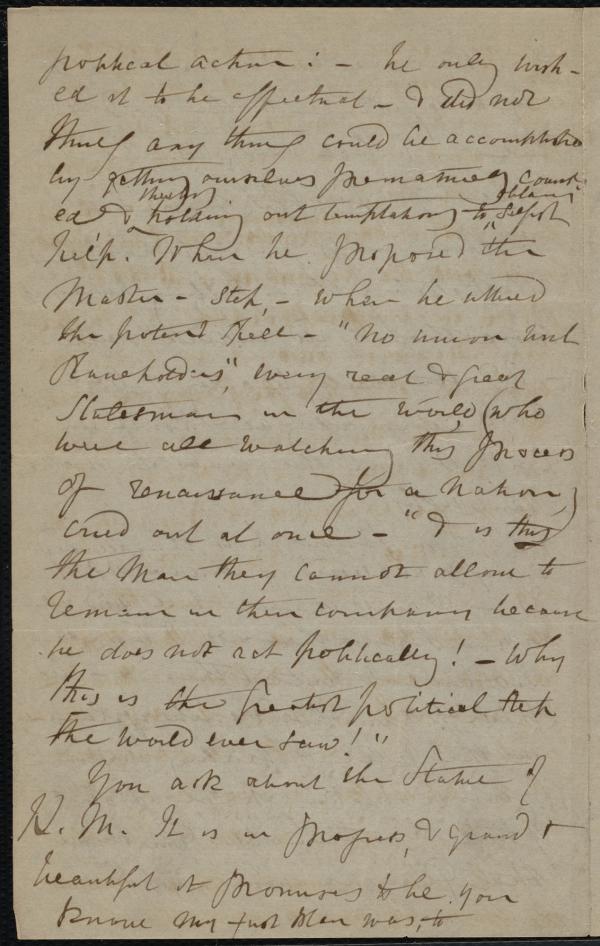 political action: - he only wish-
ed it to be effectual - & did not
think any thing could be accomplished
by getting ourselves prematurely count-
ed & thereby holding out temptations to obtain selfish
help. When he proposed "the
Master - step, - when he uttered
the potent spell - "no union with
Slaveholders", every real & great
Statesman in the world (who
were all watching this process
of renaissance for a nation,)
cried out at once - "& is this
the man they cannot allow to
remain in their company because
he does not act politically! - Why
this is the greatest political step
the world ever saw!"
You ask about the Statue of
H. M. It is in progress, & grand &
beautiful it promises to be. You
know my first plan was, to